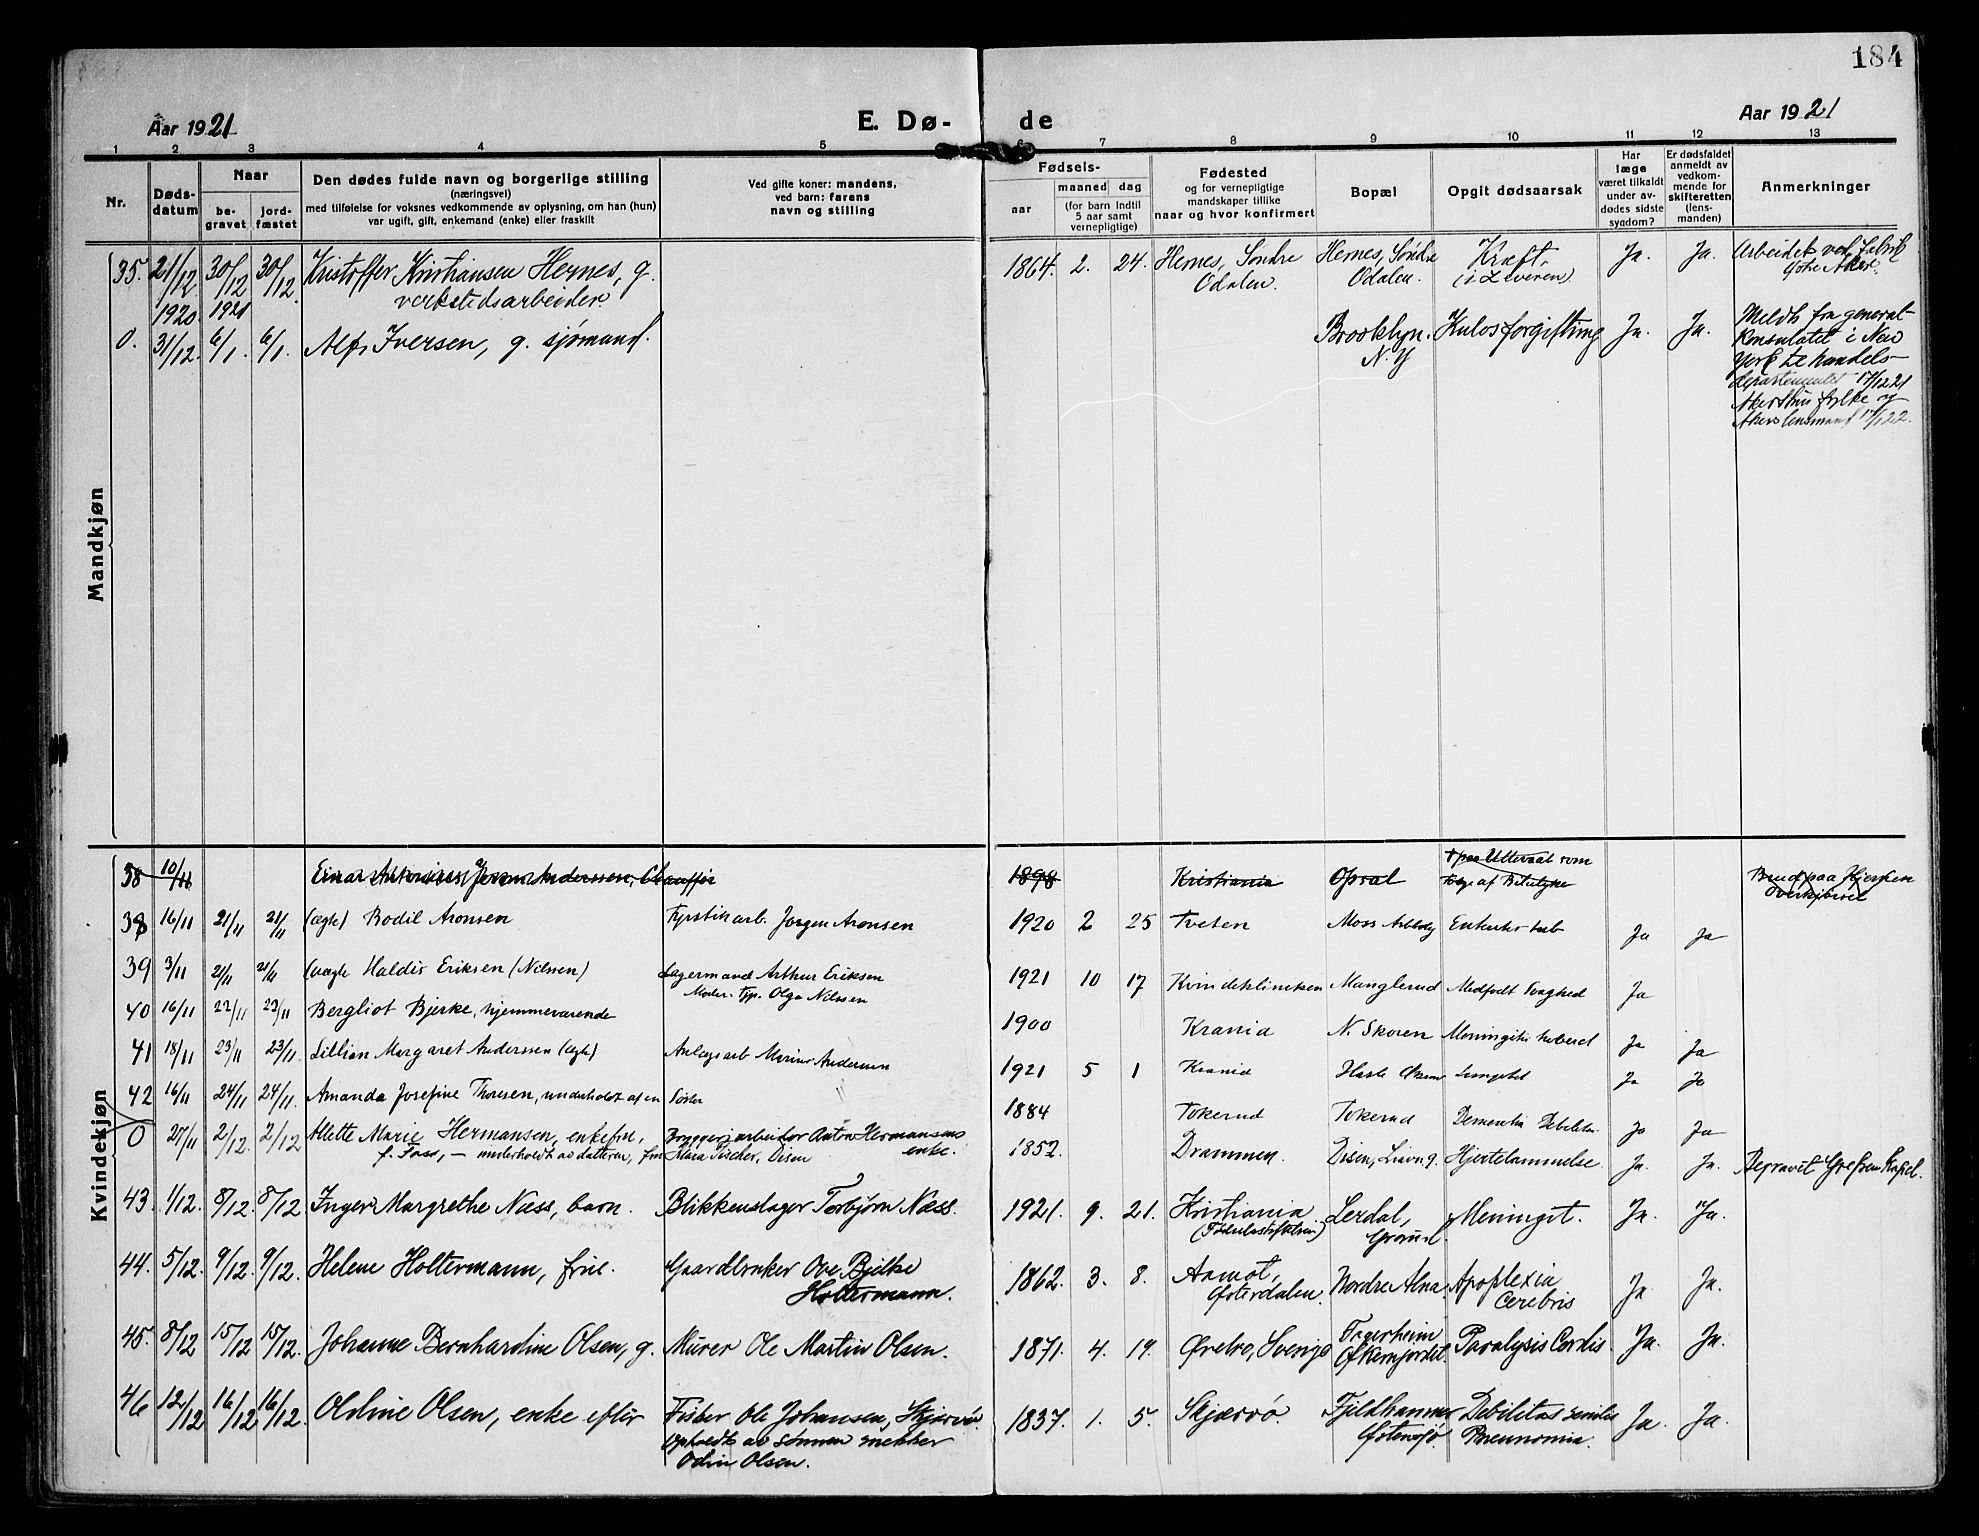 184
Aar 1921
E. Dø-
de
Aar 1921
1 2 3 4 5 6 7 8 9 10 11 12 13
Nr.
Døds-
datum
Naar
be-
gravet
jord-
fæstet
Den dødes fulde navn og borgerlige stilling
(næringsvei)
med tilføielse for voksnes vedkommende av oplysning, om han (hun)
var ugift, gift, enkemand (enke) eller fraskilt
Ved gifte koner: mandens,
ved barn: farens
navn og stilling
Fødsels-
aar
maaned dag
(for barn indtil
5 aar samt
vernepligtige)
Fødested
og for vernepligtige
mandskaper tillike
naar og hvor konfirmert
Bopæl
Opgit dødsaarsak
Har
læge
været tilkaldt
under av-
dødes sidste
sygdom?
Er dødsfaldet
anmeldt av
vedkom-
mende for
skifteretten
(lens-
manden)
Anmerkninger
Mandkjøn
35. 21/12 30/12 30/12. Kristoffer Kristiansen Hernes, g.
verkstedsarbeider.
1864. 2. 24. Hernes, Søndre
Odalen.
Hernes, Søndre
Odalen.
Kræft
(i Leveren)
Ja. Ja. Arbeidet ved fabrik
i Aker.
1920. 1921
0. 31/12. 6/1. 6/1. Alf Iversen, g. sjømand.
Brooklyn.
N.Y
Kulosforgiftning Ja. Ja. Meldt fra general-
konsulatet i New
York til handels-
departementet 17/12 21
Akershus fylke og
Akers lensmand 17/1 22.
Kvindekjøn
38 10/11 Einar Antonius Anderssen, Chauffør 1898 Kristiania Opsal
38 16/11 21/11 21/11 (ægte) Bodil Aronsen Fyrstikarb. Jørgen Aronsen 1920 2 25 Tveten Moss Ja Ja
39 3/11 21/11 21/11 (uægte Haldis Eriksen (Nilssen) Lagermand Arthur Eriksen
Moder: Olga Nilssen
1921 10 17 Kvindeklinikken Manglerud Medfødt Svaghed Ja
40 16/11 23/11 23/11 Bergliot Bjerke, hjemmeværende 1900 Krania N. Skøien Meningitis tuberc. Ja Ja
41 18/11 23/11 23/11 Lillian Margaret Anderssen (ægte) Anlægsarb Marius Andersen 1921 5 1 Krania Hasle Ja Ja
42 16/11 24/11 24/11. Amanda Josefine Thoresen, underholdt af en Søster 1884 Tokerud Tokerud Dementia Debilitas Ja Ja
0 27/11 2/12. 2/12 Alette Marie Hermansen, enkefru,
f. Foss, – underholdt av datteren, fru
Bryggeriarbeider Anton Hermansens
enke.
Klara Fischer, Disen
1852. Drammen. Disen, Hjertelammelse. Ja. Ja. Begravet Grefsen Kapel.
43. 1/12. 8/12. 8/12 Inger Margrethe Næss, barn. Blikkenslager Torbjørn Næss. 1921. 9. 21. Kristiania
(Fødselsstiftelsen)
Lerdal,
Grorud.
Meningit. Ja. Ja.
44. 5/12. 9/12. 9/12. Helene Holtermann, frue. Gaardbruker Ove Bjelke
Holtermann.
1862. 3. 8. Aamot,
Østerdalen.
Nordre Alna. Apoplexia
Cerebris
Ja. Ja.
45. 8/12 15/12 15/12. Johanne Bernhardine Olsen, g. Murer Ole Martin Olsen. 1871. 4. 19. Ørebro, Sverige Fagerheim
Paralysis Cordis Ja. Ja.
46 12/12 16/12 16/12. Oldine Olsen, enke efter Fisker Ole Johansen, Skjærvø.
Opholdt av sønnen snekker
Odin Olsen.
1837. 1. 5. Skjærvø. Fjeldhammer
Østensjø.
Debilitas senilis
Pneumonia.
Ja. Ja.